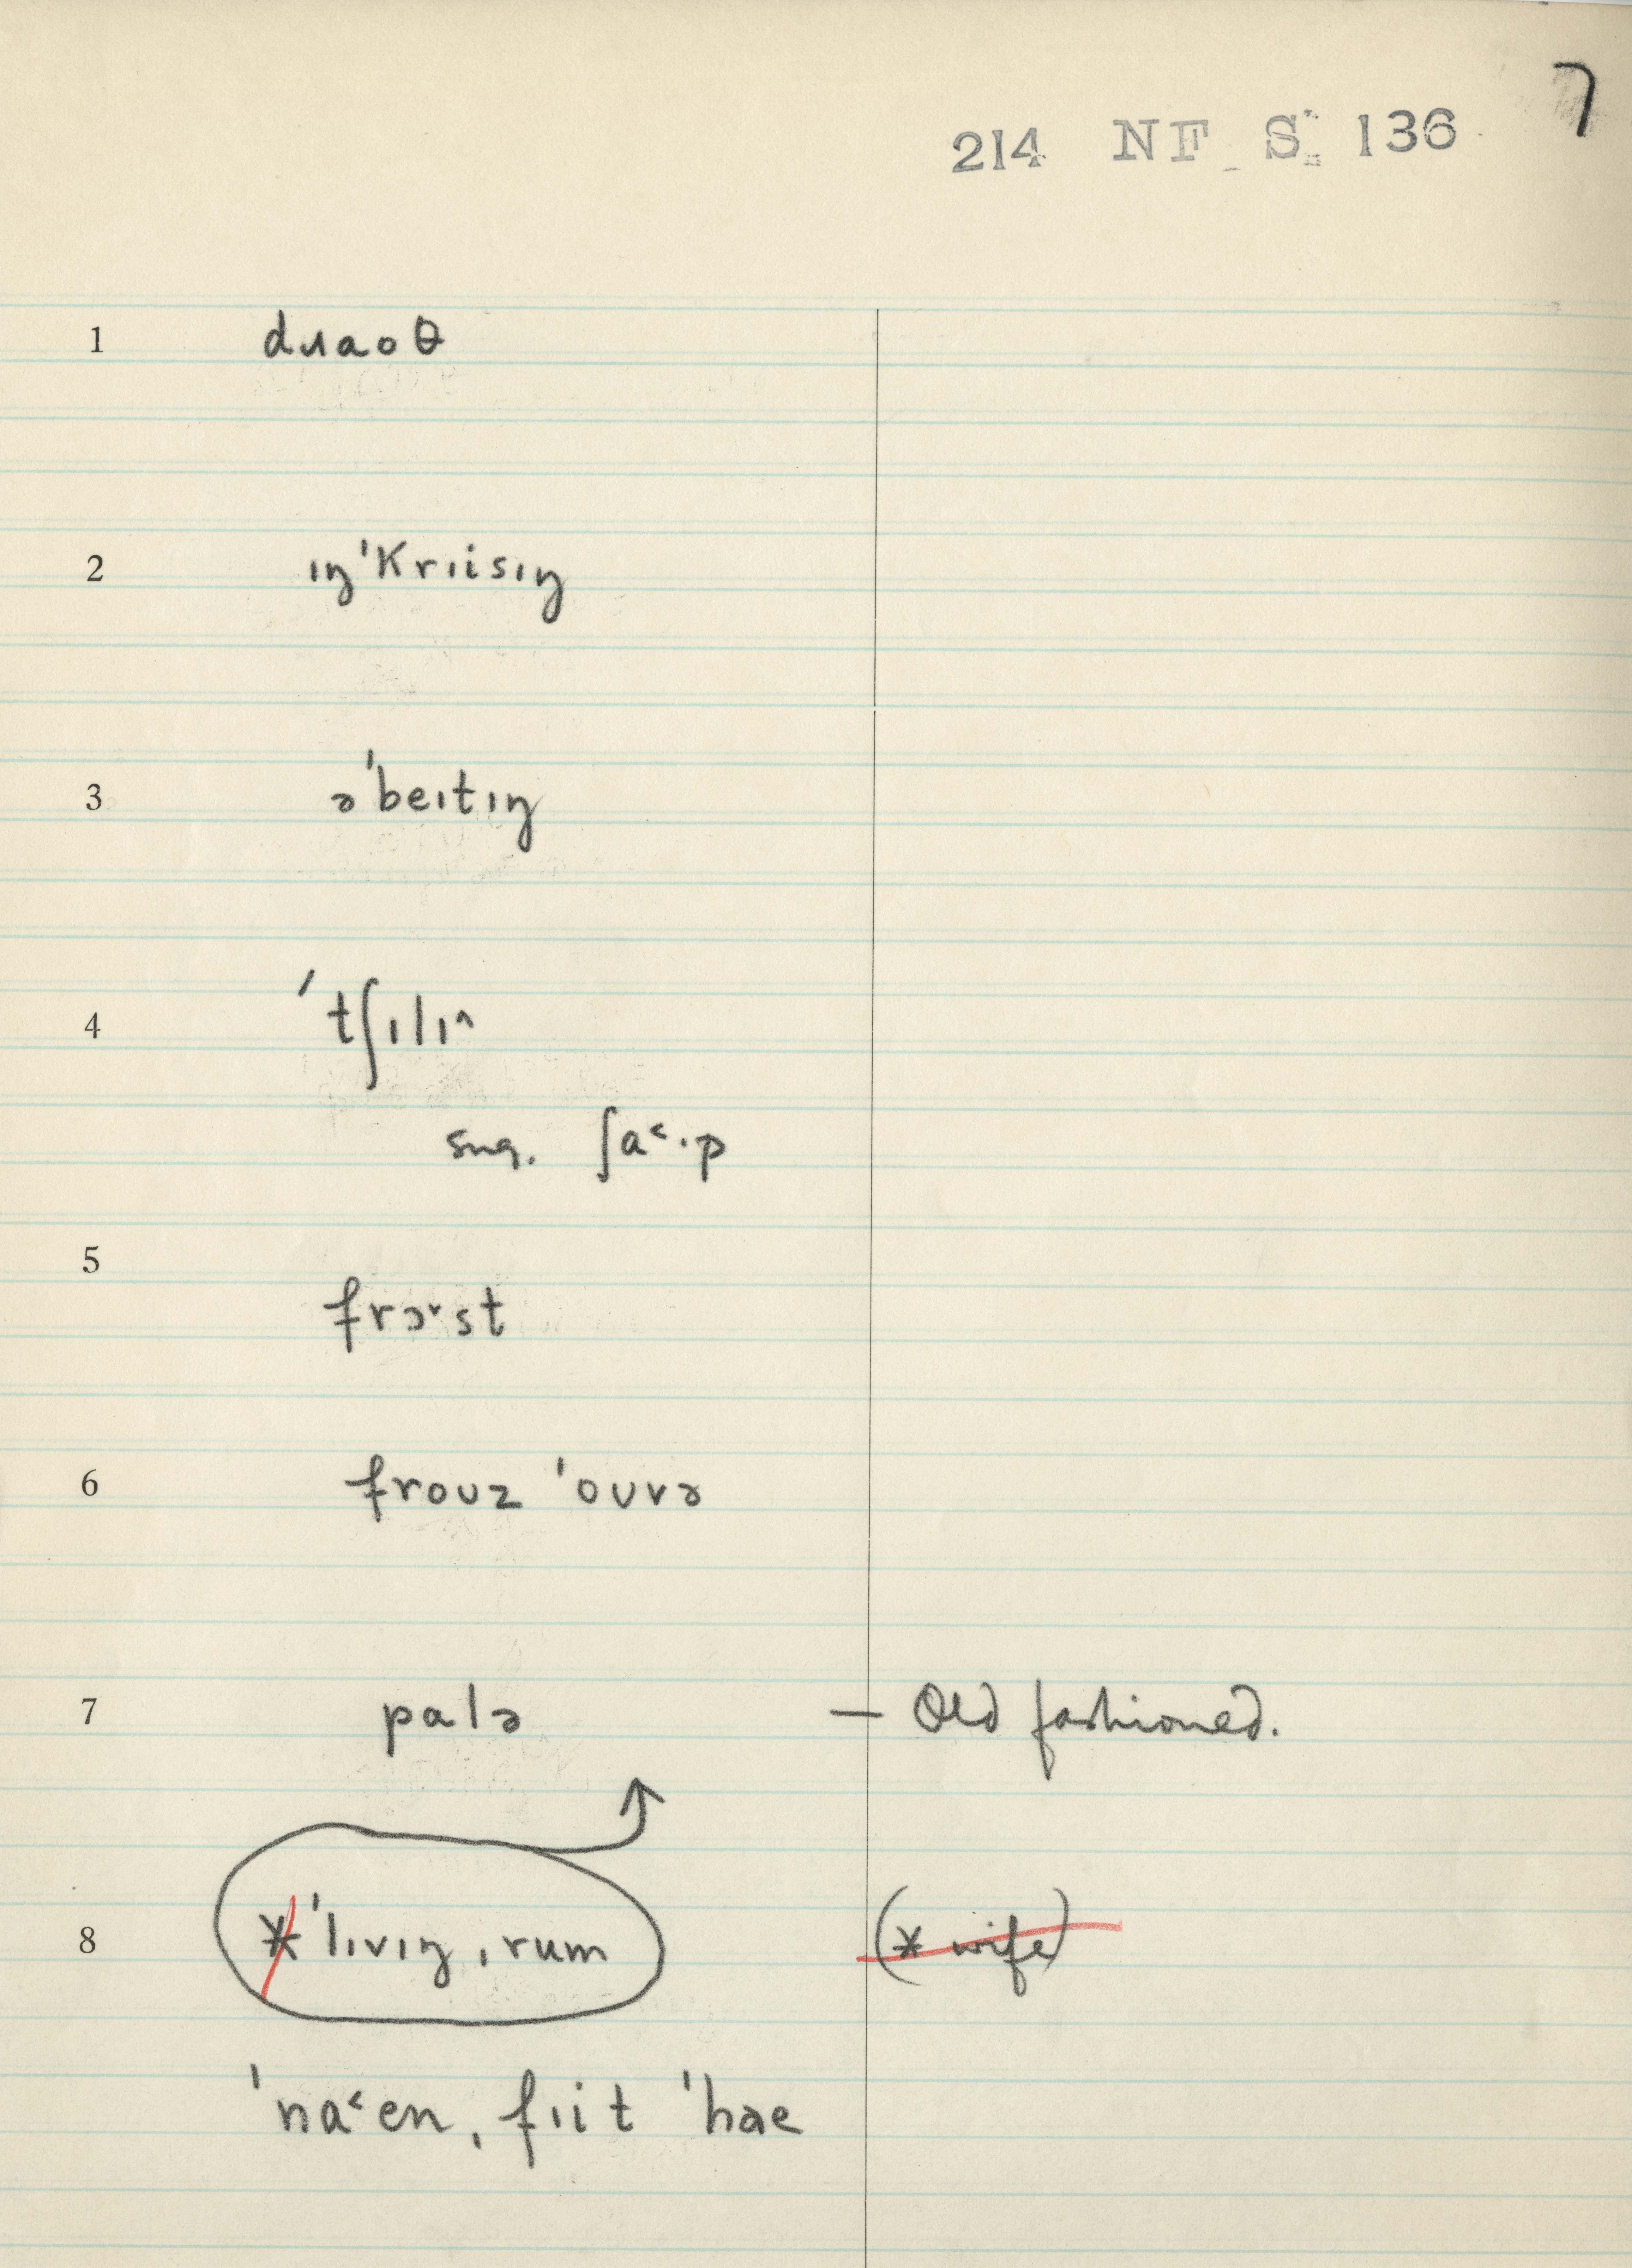 7
214 NF S: 136
1 dɹaoθ
2 ɪŋˈKrɪisɪŋ
3 əˈbeɪtɪŋ
4 ˈtʃɪlɪ^
sug. ʃa˂·p
5
frɔ˅st
6 froʊz ˈoʊvə
7 palə — Old fashioned.
8 *ˈlɪvɪŋˌrum (* wife)
ˈna˂enˌfɪit ˈhae